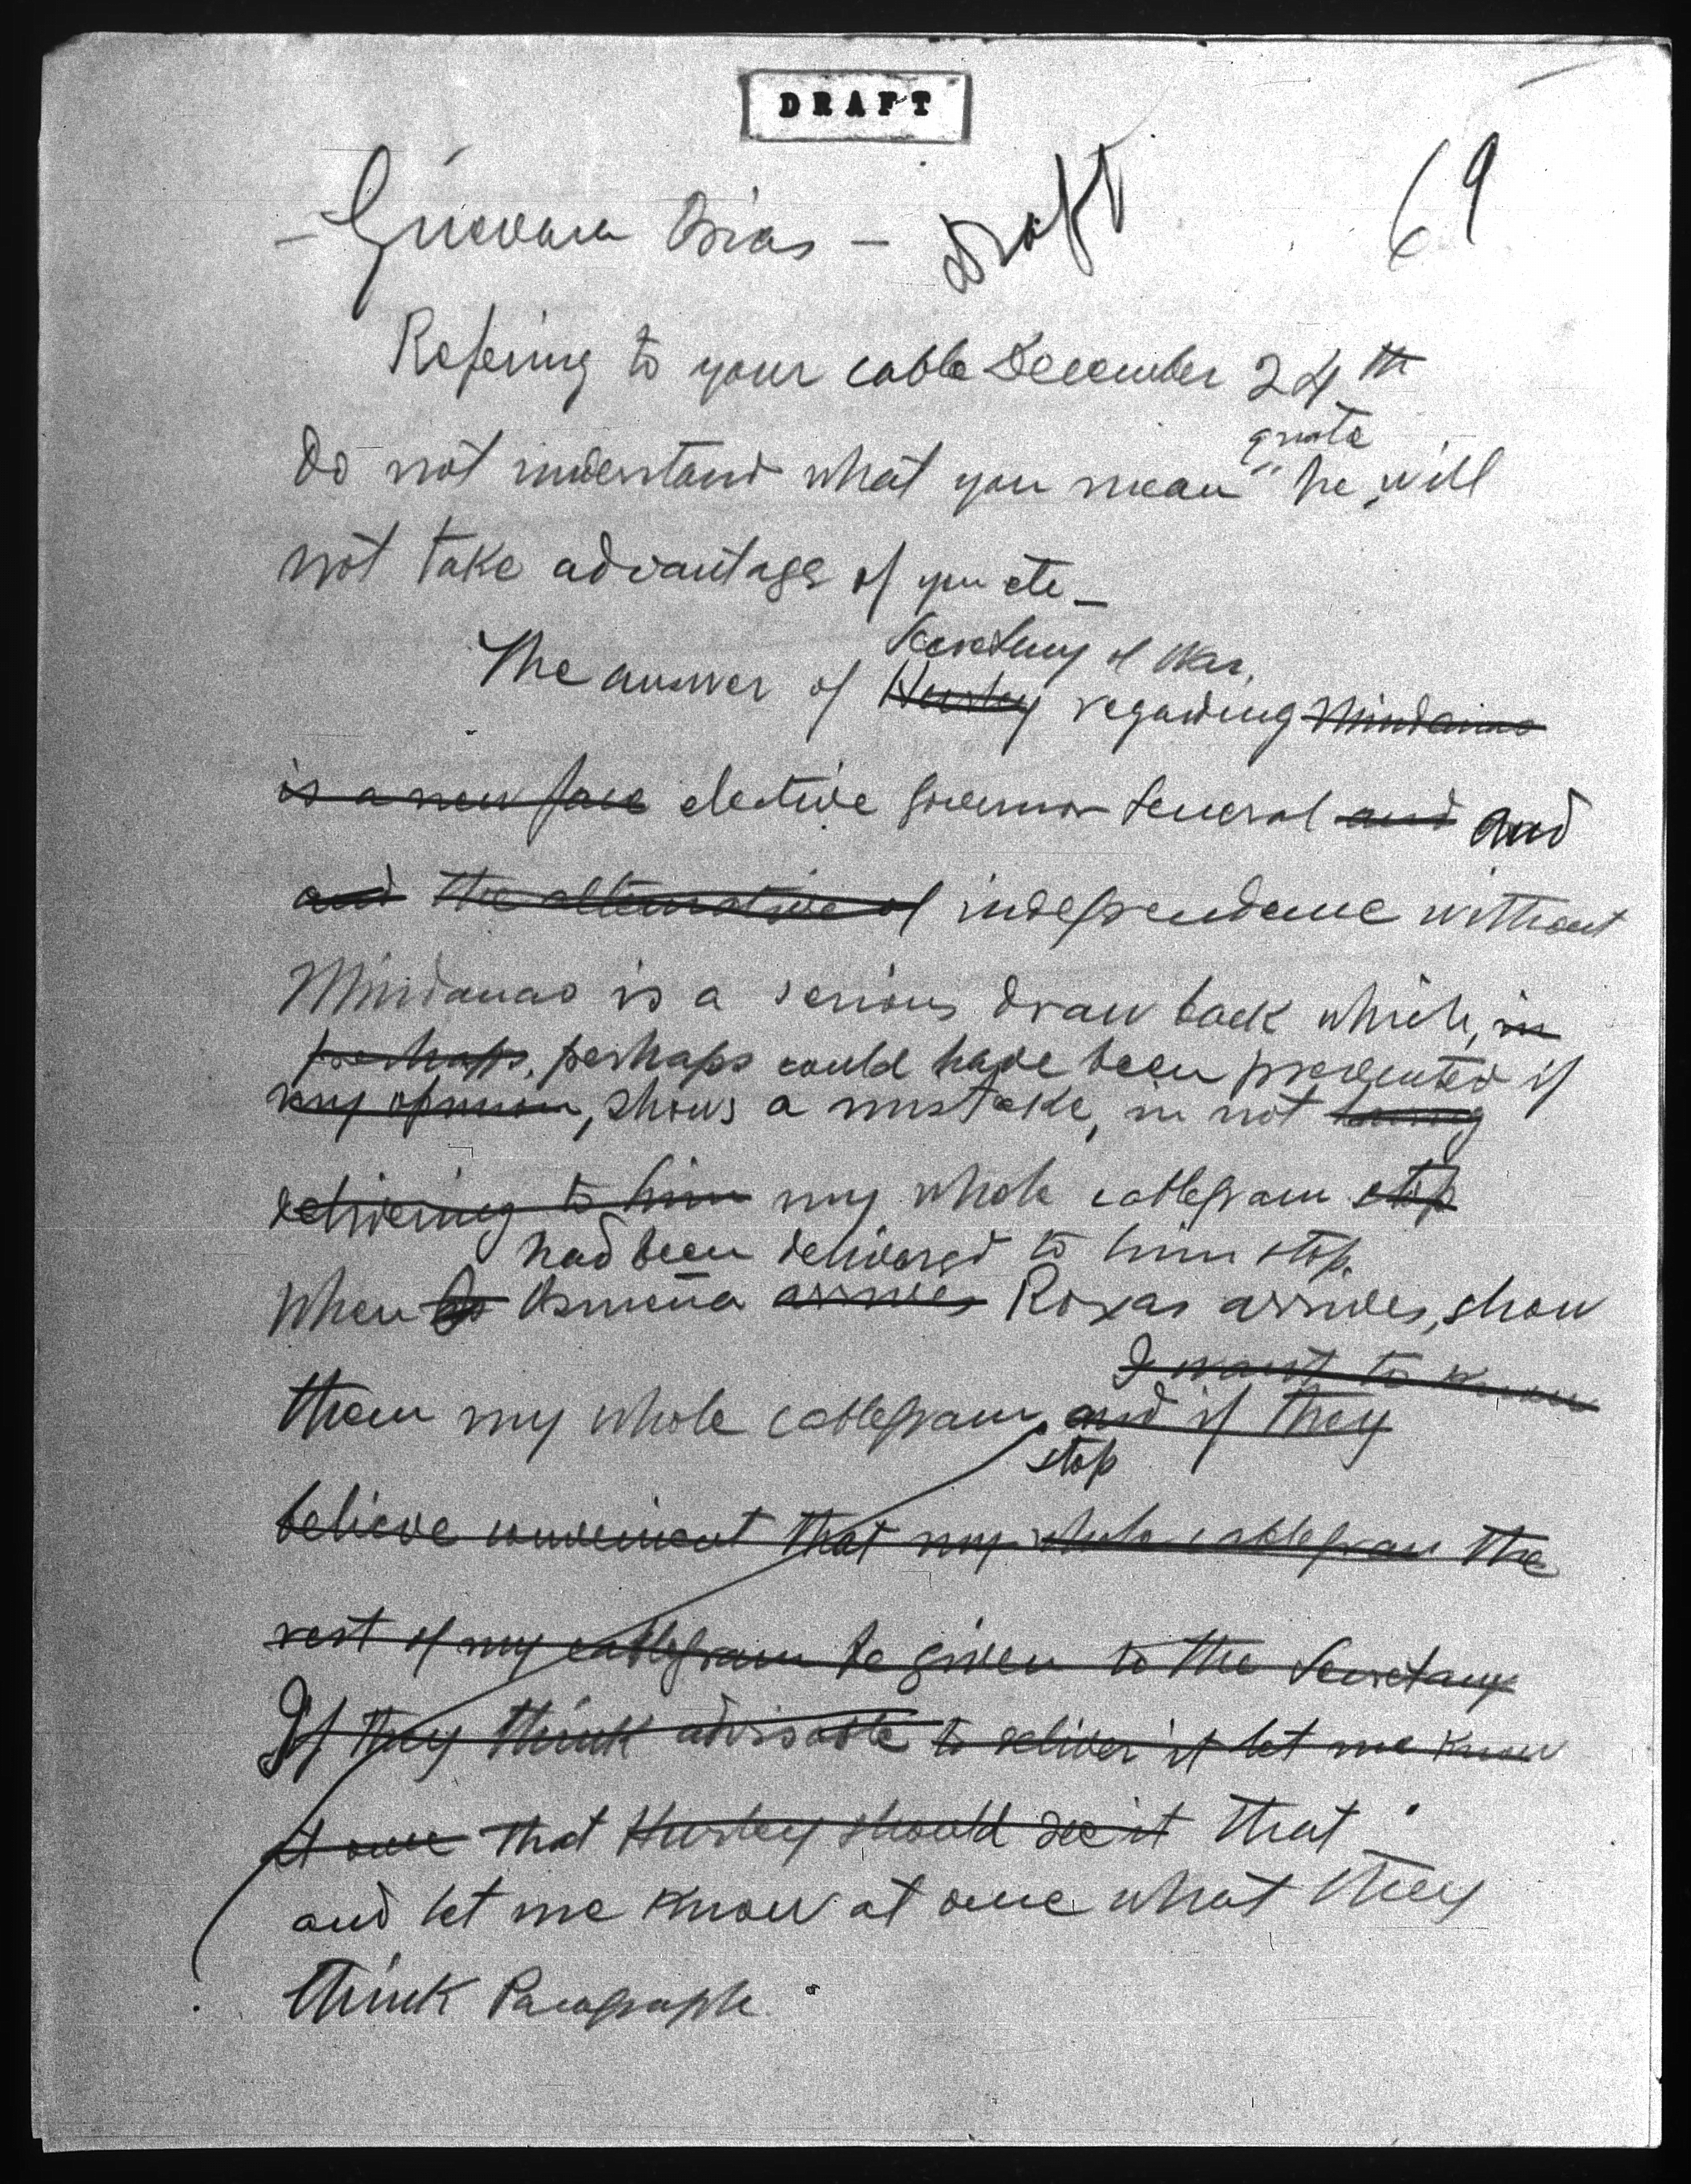 DRAFT
- Guevara Osias - Draft
69
Refering to your cable December 24th
quote
Do not understand what you mean " he will
not take advantage of you etc -
Secretary of War,
The answer of Hurley regarding Mindanao
is a new face elective Governor General and and
and the alternative of independence without
Mindanao is a serious drawback which, in
perhaps, perhaps could have been prevented if
my opinion, shows a mistake, in not having
delivering to him my whole cablegram stop
had been delivered to him stop.
When Osmeña arrives Roxas arrives, show
I want to know
them my whole cablegram, and if they
stop
believe convenient that my whole cablegram the
rest of my cablegram be given to the Secretary
If they think advisable to deliver it let me know
at once that Hurley should see it that
and let me know at once what they
think Paragraph.